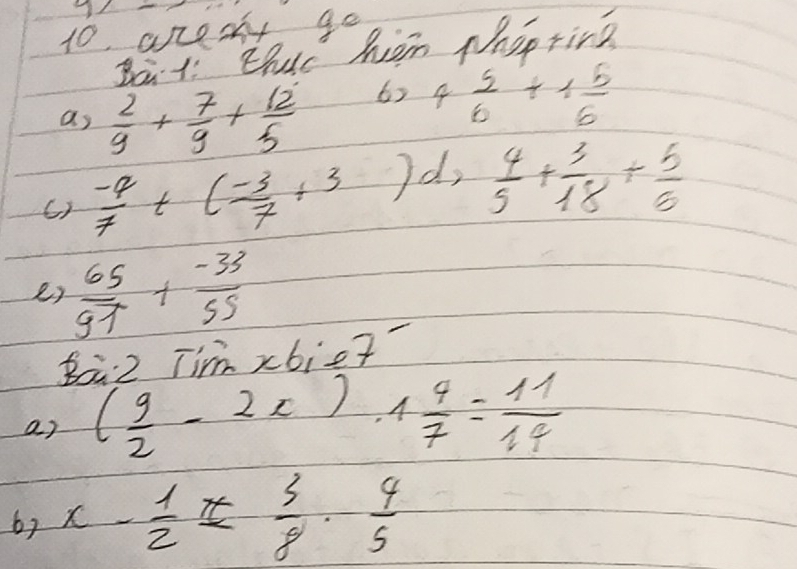 10. go
Bài 1: thực hiện phép tính
a) 2/9 + 7/9 + 12/5 b) 4 5/6 + 1 5/6
c) -4/7 + (-3/7 + 3) d) 4/5 + 3/18 + 5/6
e) 65/91 + -33/55
Bài 2 Tìm x biết
a) (9/2 - 2x) . 1 4/7 = 11/14
b) x - 1/2 = 3/8 . 4/5